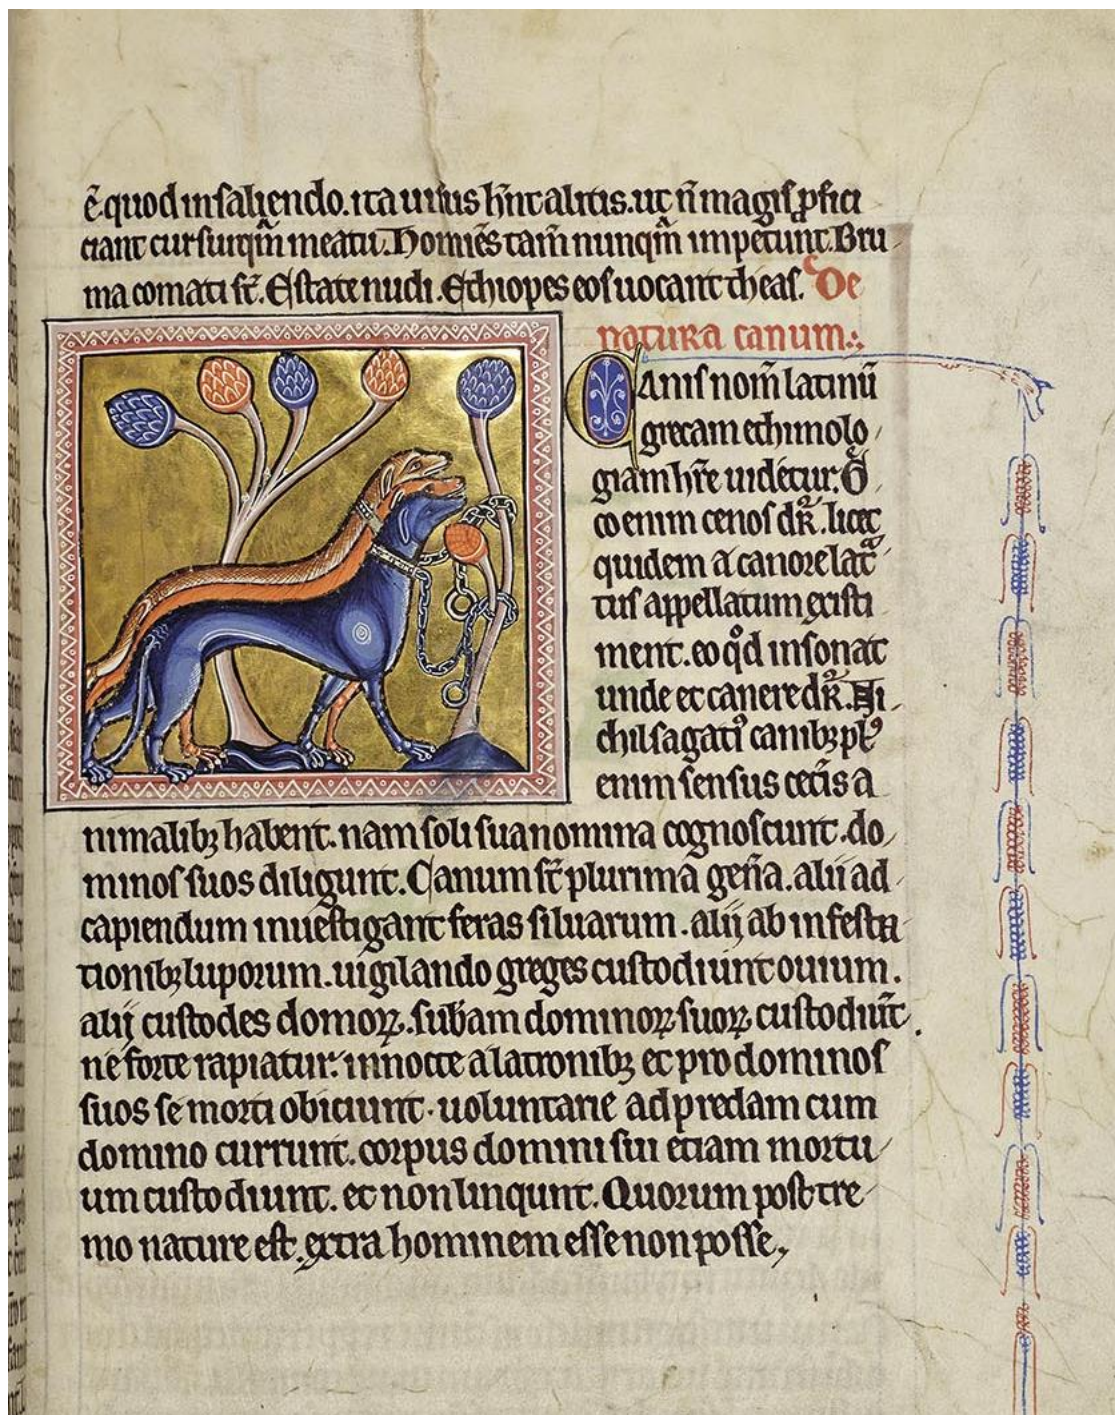 ē. quod in saliendo. ita uisus h̄nt alitis. ut n̄ magis ꝓfici
ciant cursu q̄m meatu. Homiēs tam̄ nunq̄m impetunt. Bru
ma comati st̄. Estate nudi. Ethiopes eos uocant theas. De
natura canum:.
Canis nom̄ latinū
grecam ethimolo
giam h̄re uidetur. G̊
co enim cenos dr̄. licet
quidem a canore lat̊
tus appellatum existi
ment. eo qͦd insonat
unde et canere dr̄. Ni
chil sagatiꝰ canibꝫ plꝰ
enim sensus cet̄is a
nimalibꝫ habent. nam soli sua nomina cognoscunt. do
minos suos diligunt. Canum st̄ plurima gen̄a. alii ad
capiendum inuestigant feras siluarum. alij ab infesta
tionibꝫ luporum. uigilando greges custodiunt ouium.
alij custodes domoꝝ. sub̄am dominoꝝ suoꝝ custodiūt.
ne forte rapiatur: in nocte a latronibꝫ et pro dominos
suos se morti obiciunt. uoluntarie ad predam cum
domino currunt. corpus domini sui etiam mortu
um custodiunt. et non linqunt. Quorum postre
mo nature est. extra hominem esse non posse,